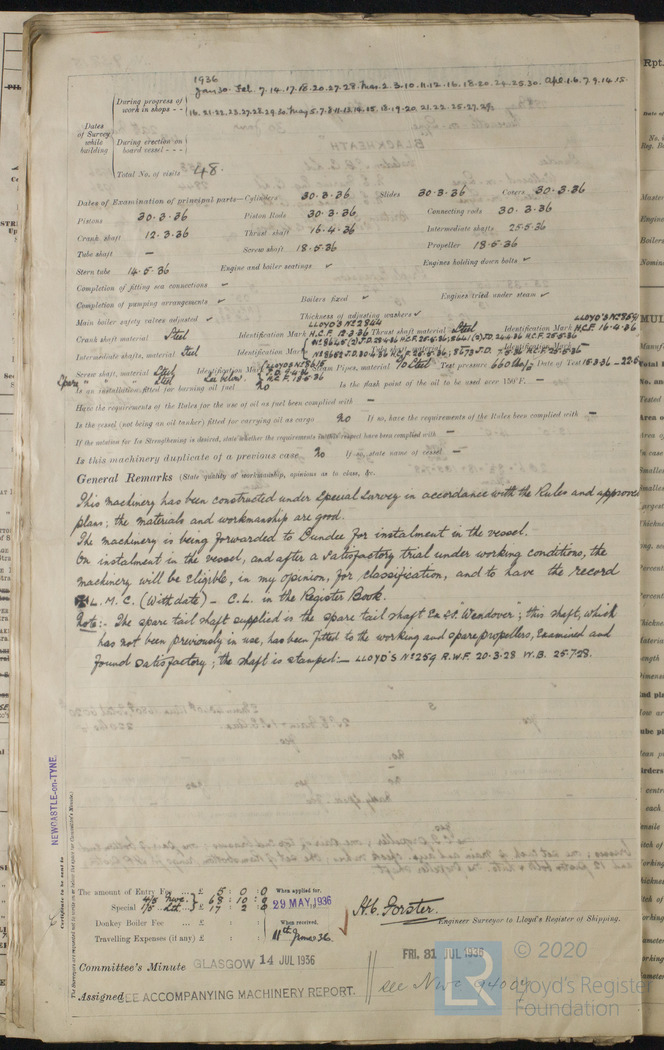 1936
Jan 30. Feb. 7. 14. 17. 18. 20. 27. 28. Mar. 2. 3. 10. 11. 12. 16. 18. 20. 24. 25. 30. Apl. 1. 6. 7. 9. 14. 15.
During progress of work in shops - -
16. 21. 22. 23. 27. 28. 29. 30. May 5. 7. 8. 11. 12. 14. 15. 18. 19. 20. 21. 22. 25. 27. 29.
Dates of Survey while building
During erection on board vessel - - -
Total No. of visits 48.
Dates of Examination of principal parts—Cylinders 30.3.36 Slides 30.3.36 Covers 30.3.36
Pistons 30.3.36 Piston Rods 30.3.36 Connecting rods 30.3.36
Crank shaft 12.3.36 Thrust shaft 16.4.36 Intermediate shafts 25.5.36
Tube shaft — Screw shaft 18.5.36 Propeller 18.5.36
Stern tube 14.5.36 Engine and boiler seatings ✓ Engines holding down bolts ✓
Completion of fitting sea connections ✓
Completion of pumping arrangements ✓ Boilers fixed ✓ Engines tried under steam ✓
Main boiler safety valves adjusted ✓ Thickness of adjusting washers ✓
Crank shaft material Steel Identification Mark LLOYD'S No 2844 H.C.F. 12.3.36 Thrust shaft material Steel Identification Mark LLOYD'S No 864 H.C.F. 16.4.36
Intermediate shafts, material Steel Identification Marks Tube shaft, material Identification Mark —
Screw shaft, material Steel Identification Mark H.C.F. 18.5.36 Steam Pipes, material Steel Test pressure 660 lbs Date of Test
Spare " " " Steel See below.
Is an installation fitted for burning oil fuel No Is the flash point of the oil to be used over 150°F. —
Have the requirements of the Rules for the use of oil as fuel been complied with —
Is the vessel (not being an oil tanker) fitted for carrying oil as cargo No If so, have the requirements of the Rules been complied with —
If the notation for Ice Strengthening is desired, state whether the requirements in this respect have been complied with —
Is this machinery duplicate of a previous case No If so, state name of vessel —
General Remarks (State quality of workmanship, opinions as to class, &c.
This machinery has been constructed under Special Survey in accordance with the Rules and approved
plans; the materials and workmanship are good.
The machinery is being forwarded to Dundee for instalment in the vessel.
On instalment in the vessel, and after a satisfactory trial under working conditions, the
machinery will be eligible, in my opinion, for classification, and to have the record
✠ L.M.C. (With date) – C.L. in the Register Book.
Note:- The spare tail shaft supplied is the spare tail shaft Ex St. Wendover; this shaft, which
has not been previously in use, has been fitted to the working and spare propellers, Examined and
found satisfactory; the shaft is stamped:— LLOYD'S No 259 R.W.F. 20.3.28 W.B. 25.7.28.
NEWCASTLE-on-TYNE.
Certificate to be sent to
The amount of Entry Fee ... £ 5 : 0 : 0 When applied for,
Special £ 68 : 10 : 0 29 MAY, 1936
£ 17 : 2 :
Donkey Boiler Fee ... £ : : When received,
Travelling Expenses (if any) £ : : 11th June 36.
H.C. Forster.
Engineer Surveyor to Lloyd's Register of Shipping.
Committee's Minute GLASGOW 14 JUL 1936
FRI. 31 JUL 1936
Assigned SEE ACCOMPANYING MACHINERY REPORT.
See Nwc 94009
© 2020
LR
Lloyd's Register
Foundation
Rpt.